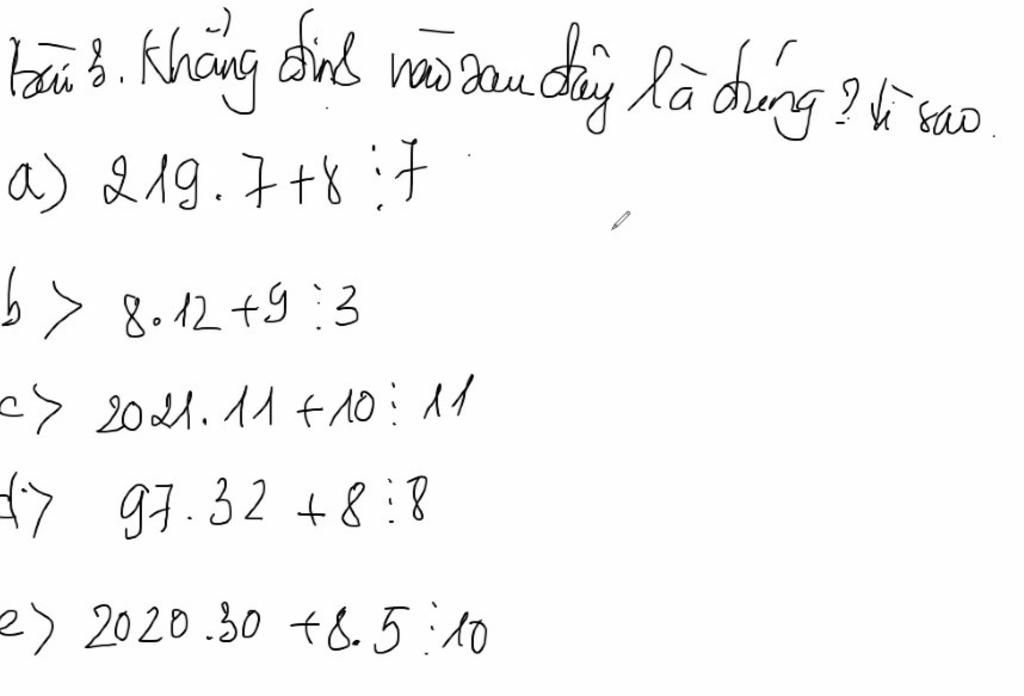 bài 3. Khẳng định nào sau đây là đúng? Vì sao.
a) 219.7+8⋮7
b> 8.12+9⋮3
c> 2021.11+10⋮11
d> 97.32+8⋮8
e> 2020.30+8.5⋮10